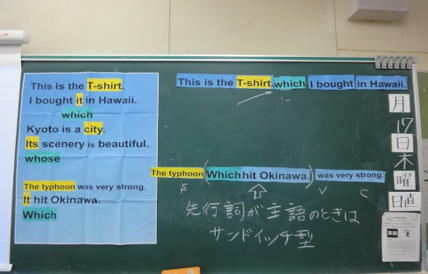 This is the T-shirt.
I bought it in Hawaii.
which
Kyoto is a city.
Its scenery is beautiful.
whose
The typhoon was very strong.
It hit Okinawa.
Which
This is the T-shirt. which I bought in Hawaii.
The typhoon (Which hit Okinawa.) was very strong.
S V C
先行詞が主語のときは
サンドイッチ型
月
17
日
木
曜
日直